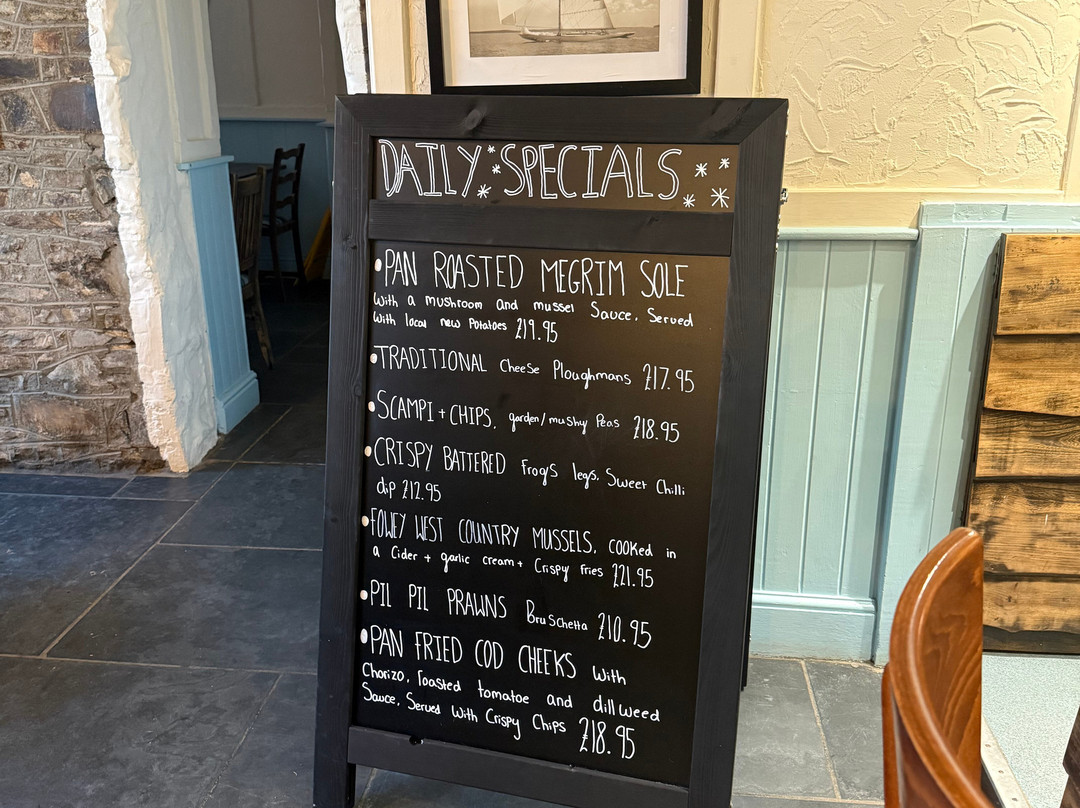 DAILY SPECIALS
• PAN ROASTED MEGRIM SOLE
With a mushroom and mussel Sauce. Served
With local new Potatoes £19.95
• TRADITIONAL Cheese Ploughmans £17.95
• SCAMPI + CHIPS. garden/mushy Peas £18.95
• CRISPY BATTERED frogs legs. Sweet Chilli
dip £12.95
• FOWEY WEST COUNTRY MUSSELS. COOKed in
a Cider + garlic cream + Crispy fries £21.95
• PIL PIL PRAWNS Bruschetta £10.95
• PAN FRIED COD CHEEKS With
Chorizo, roasted tomatoe and dillweed
Sauce. Served With Crispy Chips £18.95